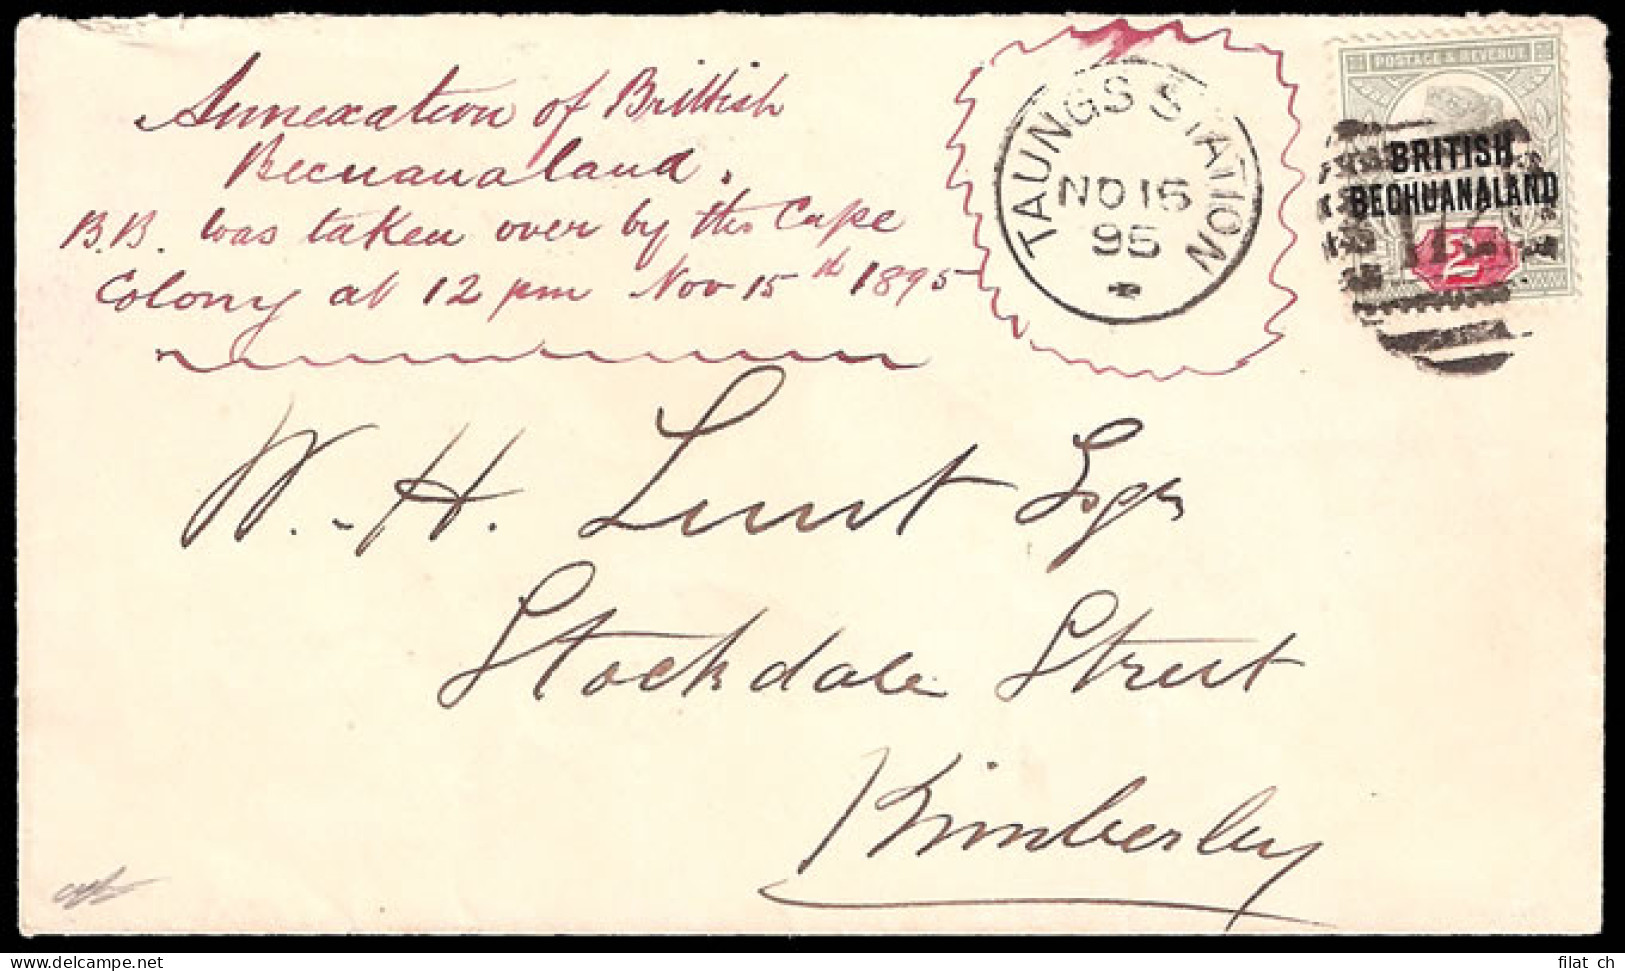 Annexation of Brittish
Becnuanaland.
B.B. was taken over by the Cape
Colony at 12 pm Nov 15th 1895
TAUNGS STATION
NO 15
95
POSTAGE & REVENUE
BRITISH
BECHUANALAND
2
W. H. Lunt Esqr
Stockdale Street
Kimberley
filat ch